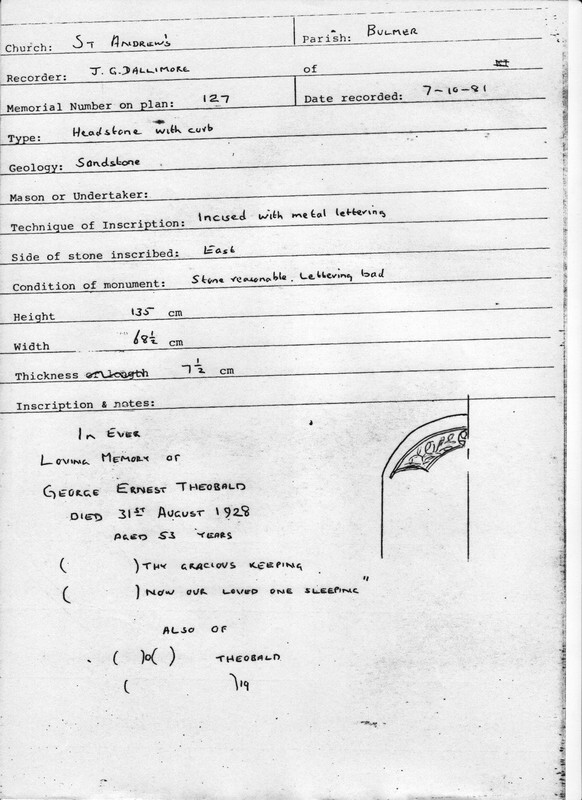 Church: St Andrew's Parish: Bulmer
Recorder: J. G. Dallimore of
Memorial Number on plan: 127 Date recorded: 7-10-81
Type: Headstone with curb
Geology: Sandstone
Mason or Undertaker:
Technique of Inscription: Incised with metal lettering
Side of stone inscribed: East
Condition of monument: Stone reasonable. Lettering bad
Height 135 cm
Width 68½ cm
Thickness or length 7½ cm
Inscription & notes:
In Ever
Loving Memory of
George Ernest Theobald
died 31st August 1928
aged 53 years
( ) Thy gracious keeping
( ) now our loved one sleeping"
also of
( )o( ) Theobald
( )19